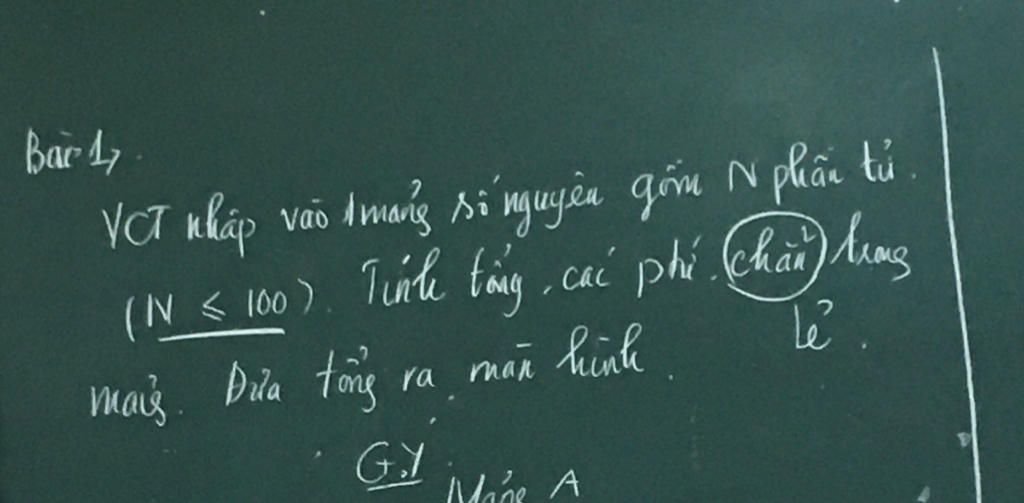 Bài 1,
VCT nhập vào 1 mảng số nguyên gồm N phần tử.
(N ≤ 100). Tính tổng các phtử chẵn trong
lẻ.
mảng. Đưa tổng ra màn hình.
G.Y
Mảng A